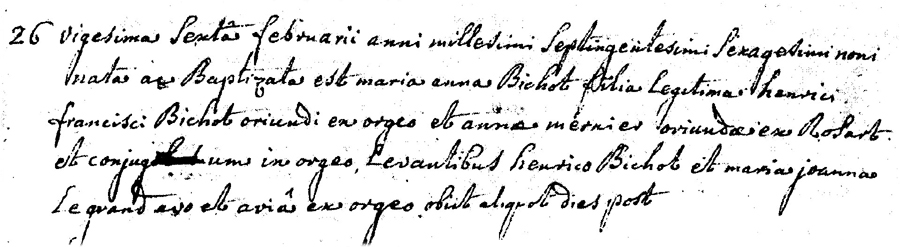 26 vigesima Sextâ februarii anni millesimi Septingentesimi Sexagesimi noni
nata ac Baptizata est maria anna Bichot filia Legitima henrici
francisci Bichot oriundi ex orgeo et annæ mernier oriundæ ex Rosart
et conjugum in orgeo, Levantibus henrico Bichot et maria joanna
Legrand avo et aviâ ex orgeo obiit aliquot dies post